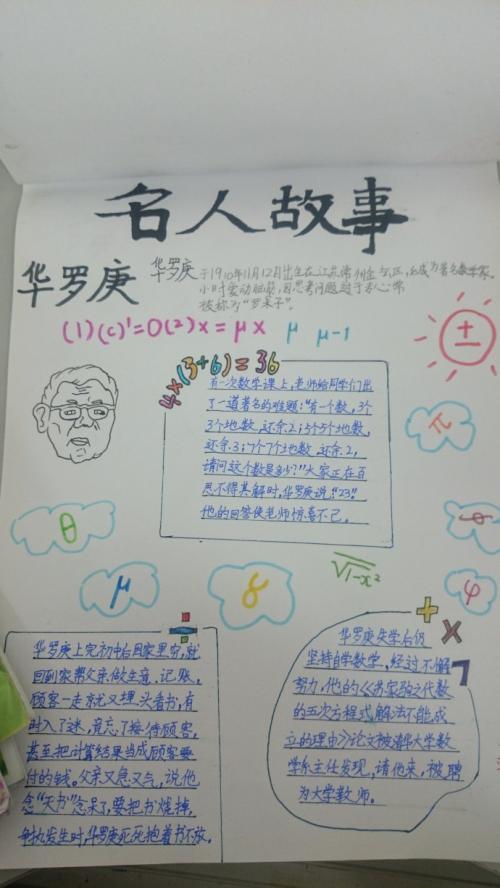 名人故事
华罗庚
华罗庚于1910年11月12日出生在江苏常州金坛区,后成为著名数学家。
小时爱动脑筋,因思考问题过于专心常
被称为"罗呆子"。
(1)(c)'=0(2)x=μx μ μ-1
4×(3+6)=36
有一次数学课上,老师给同学们出
了一道著名的难题:"有一个数,3个
3个地数,还余2;5个5个地数,
还余3;7个7个地数,还余2,
请问这个数是多少?"大家正在百
思不得其解时,华罗庚说:"23!"
他的回答使老师惊喜不已。
±
π
θ
μ
8
√1-x²
θ
φ
÷
华罗庚上完初中后因家里穷,就
回到家帮父亲做生意、记账,
顾客一走就又埋头看书,有
时入了迷,竟忘了接待顾客,
甚至把计算结果当成顾客要
付的钱。父亲又急又气,说他
念"天书"念呆了,要把书烧掉,
争执发生时,华罗庚死死抱着书不放。
+
×
华罗庚失学后仍
坚持自学数学,经过不懈
努力,他的《苏家驹之代数
的五次方程式解法不能成
立的理由》论文被清华大学数
学系主任发现,请他来,被聘
为大学教师。